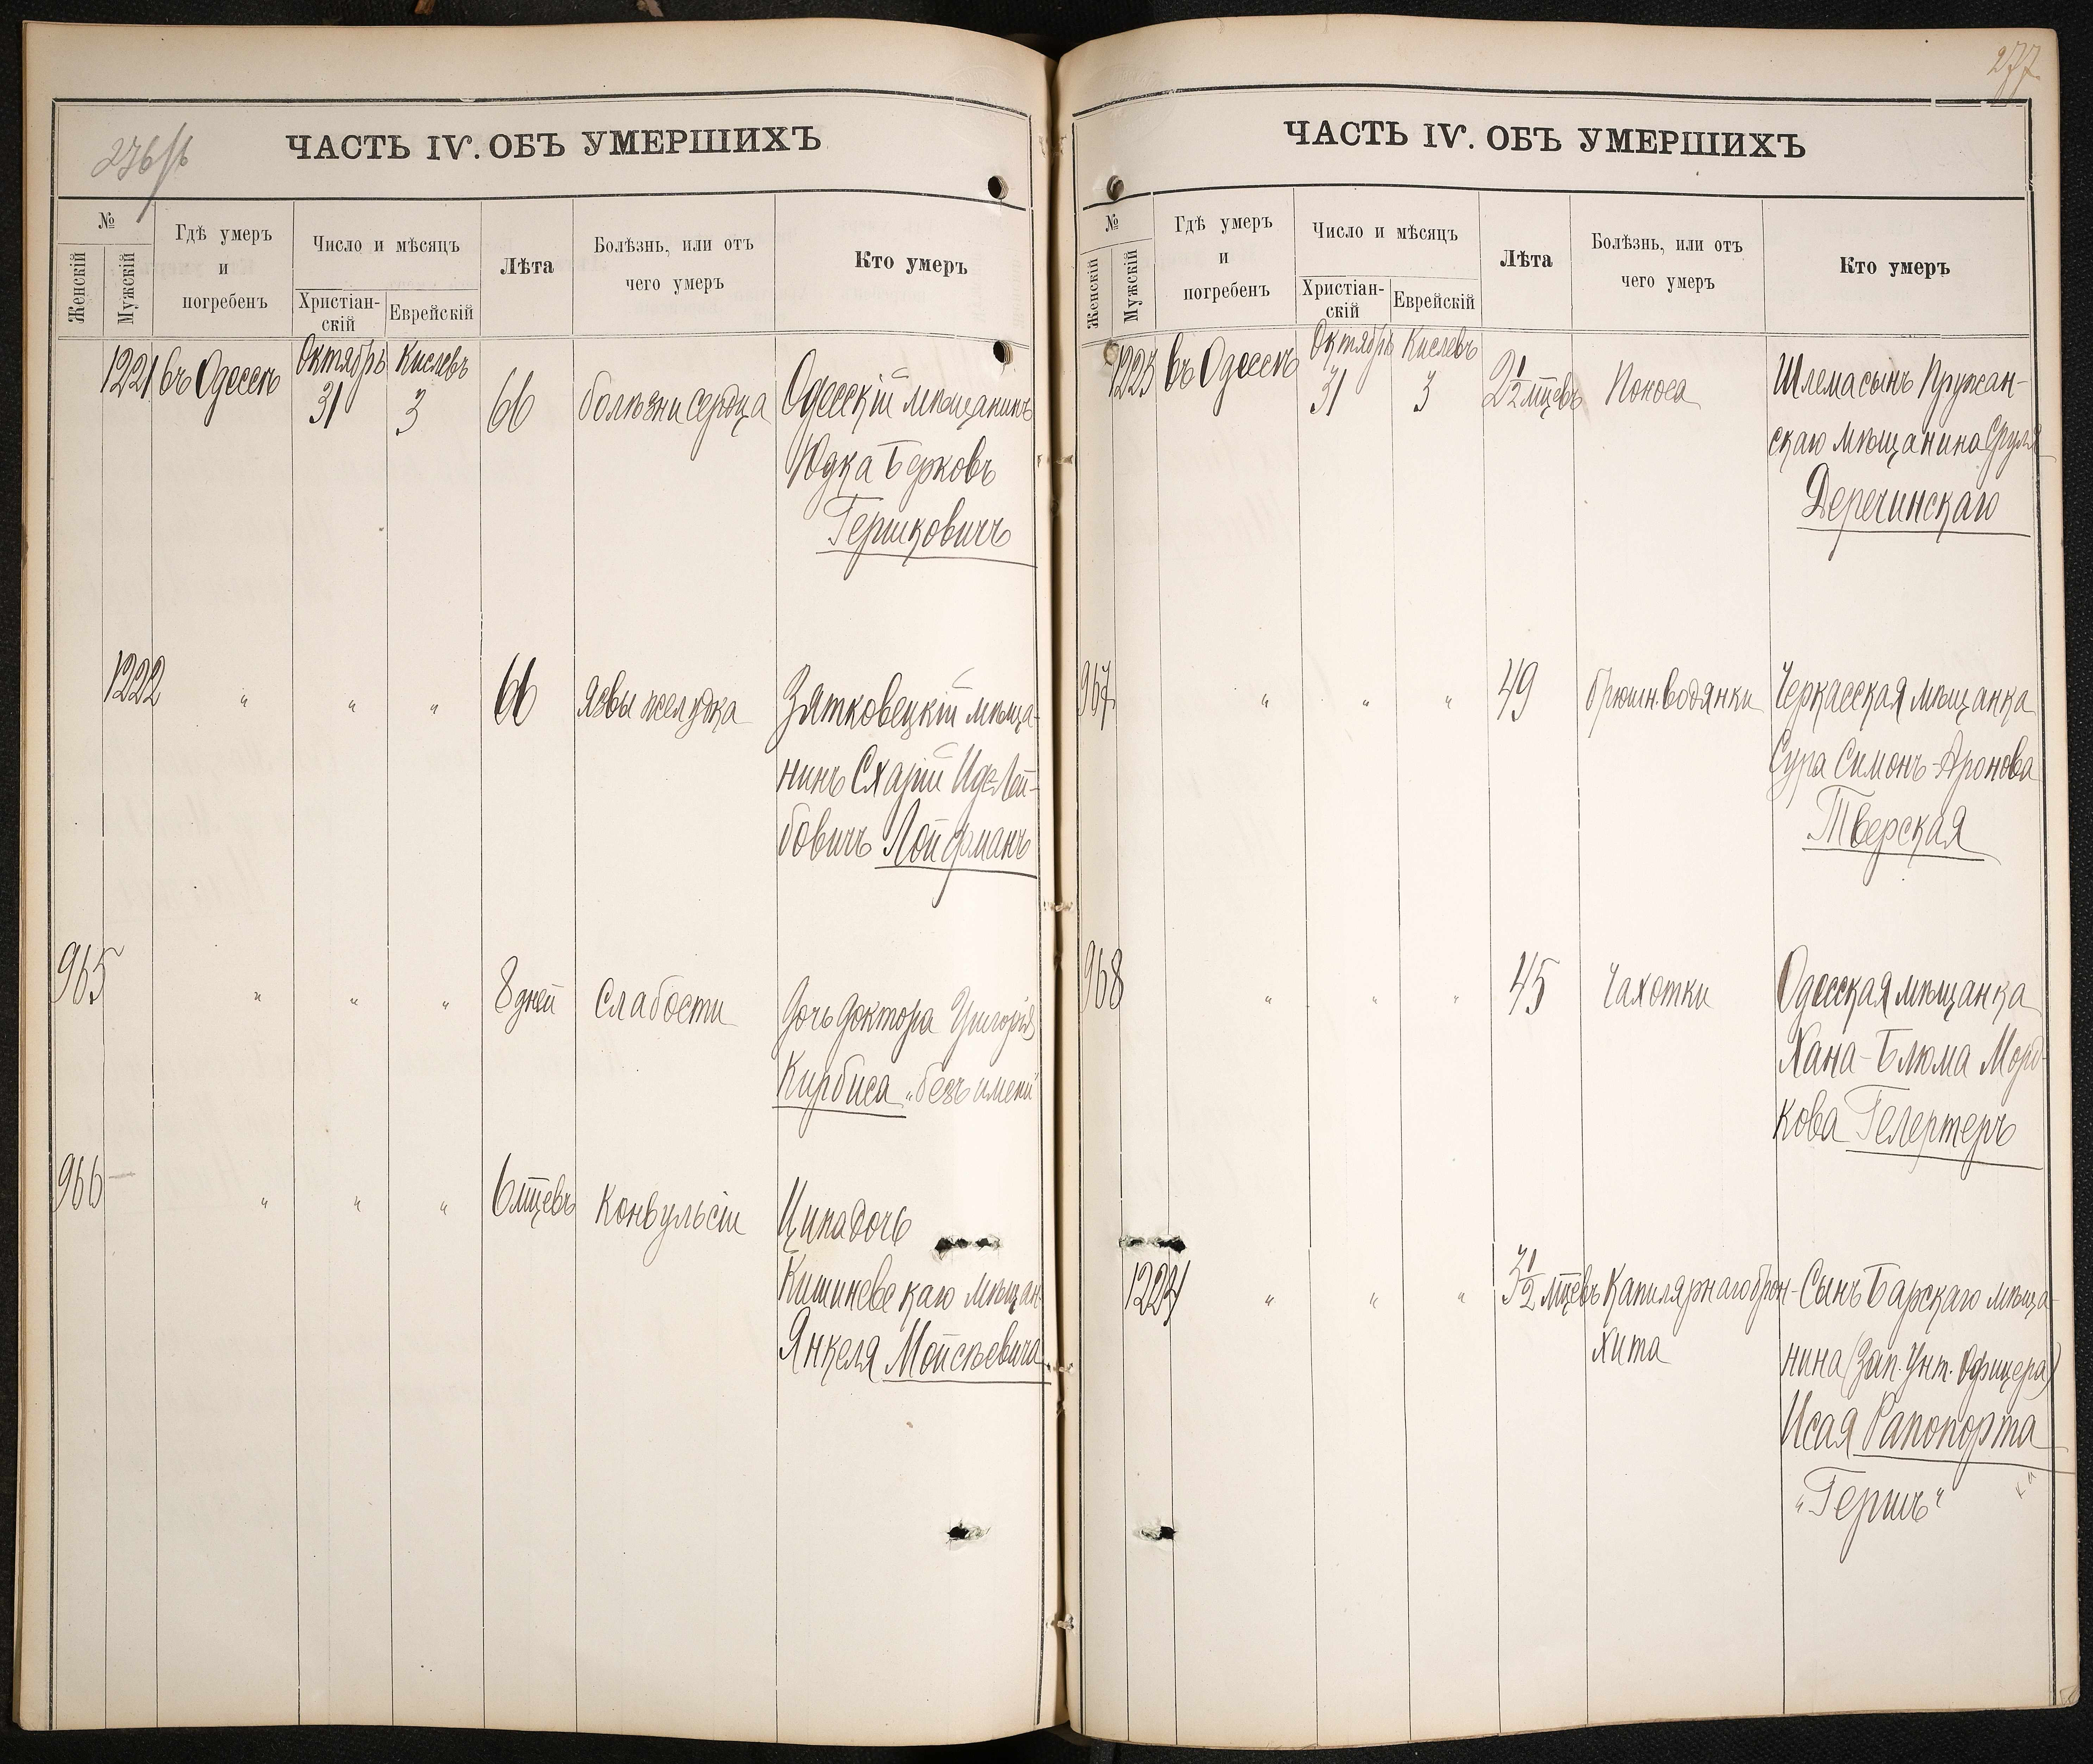 276/б
ЧАСТЬ IV. ОБЪ УМЕРШИХЪ
№
Женскій
Мужскій
Гдѣ умеръ
и
погребенъ
Число и мѣсяцъ
Христіан-
скій
Еврейскій
Лѣта
Болѣзнь, или отъ
чего умеръ
Кто умеръ
1221 въ Одессѣ Октябрь 31 Кислевъ 3 66 болѣзни сердца Одесскій мѣщанинъ
Юдка Берковъ
Гершковичъ
1222 " " " 66 Язвы желудка Зятковецкій мѣща-
нинъ Схарій Иде-Лей-
бовичъ Лойфманъ
965 " " " 8 дней Слабости Дочь доктора Григорія
Кирбиса „безъ имени"
966 — " " " 6 мцевъ Конвульсіи Ципа дочь
Кишиневскаго мѣщан.
Янкеля Мойсѣевича
277
ЧАСТЬ IV. ОБЪ УМЕРШИХЪ
№
Женскій
Мужскій
Гдѣ умеръ
и
погребенъ
Число и мѣсяцъ
Христіан-
скій
Еврейскій
Лѣта
Болѣзнь, или отъ
чего умеръ
Кто умеръ
1223 въ Одессѣ Октябрь 31 Кислевъ 3 2 1/2 мцевъ Поноса Шлема сынъ Пружан-
скаго мѣщанина Сруля
Деречинскаго
967 " " " 49 брюшн. водянки Черкасская мѣщанка
Сура Симонъ-Аронова
Тверская
968 " " " 45 Чахотки Одесская мѣщанка
Хана-Блюма Морд-
кова Гелертеръ
1224 " " " 3 1/2 мцевъ Капилярнаго брон- Сынъ Барскаго мѣща-
хита нина (Зап. Унт. Офицера)
Исая Рапопорта
„Гершъ"